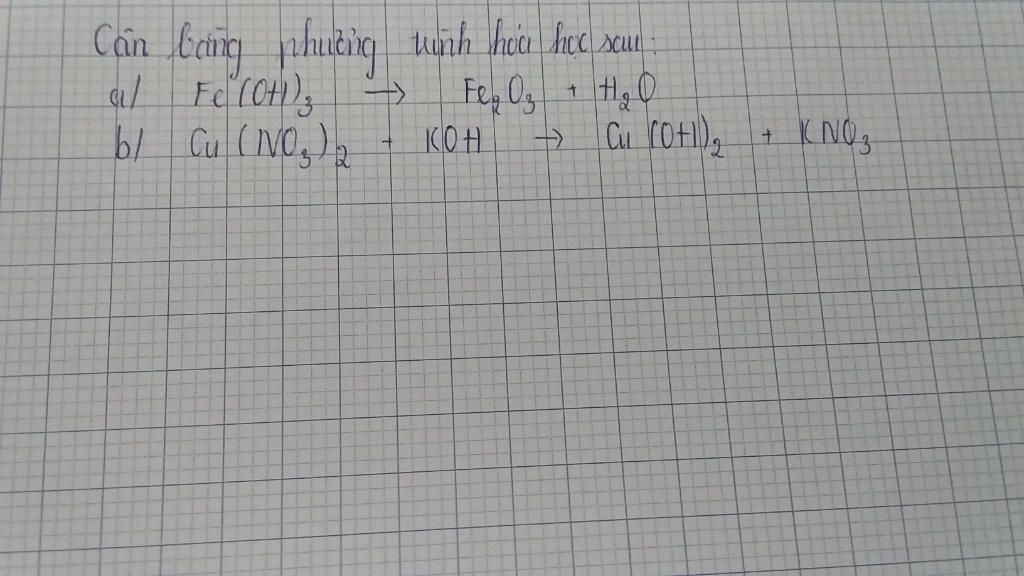 Cân bằng phương trình hóa học sau:
a/ Fe(OH)₃ → Fe₂O₃ + H₂O
b/ Cu(NO₃)₂ + KOH → Cu(OH)₂ + KNO₃